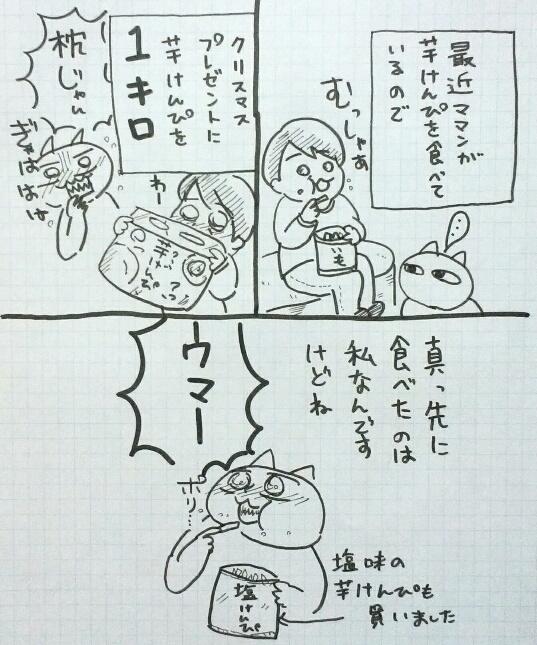 最近ママンが
芋けんぴを食べて
いるので
むっしゃあ
いも
クリスマス
プレゼントに
芋けんぴを
1キロ
わー
芋けんぴ
枕じゃん
ぎゃははは
真っ先に
食べたのは
私なんです
けどね
ウマー
ポリ…
塩けんぴ
塩味の
芋けんぴも
買いました